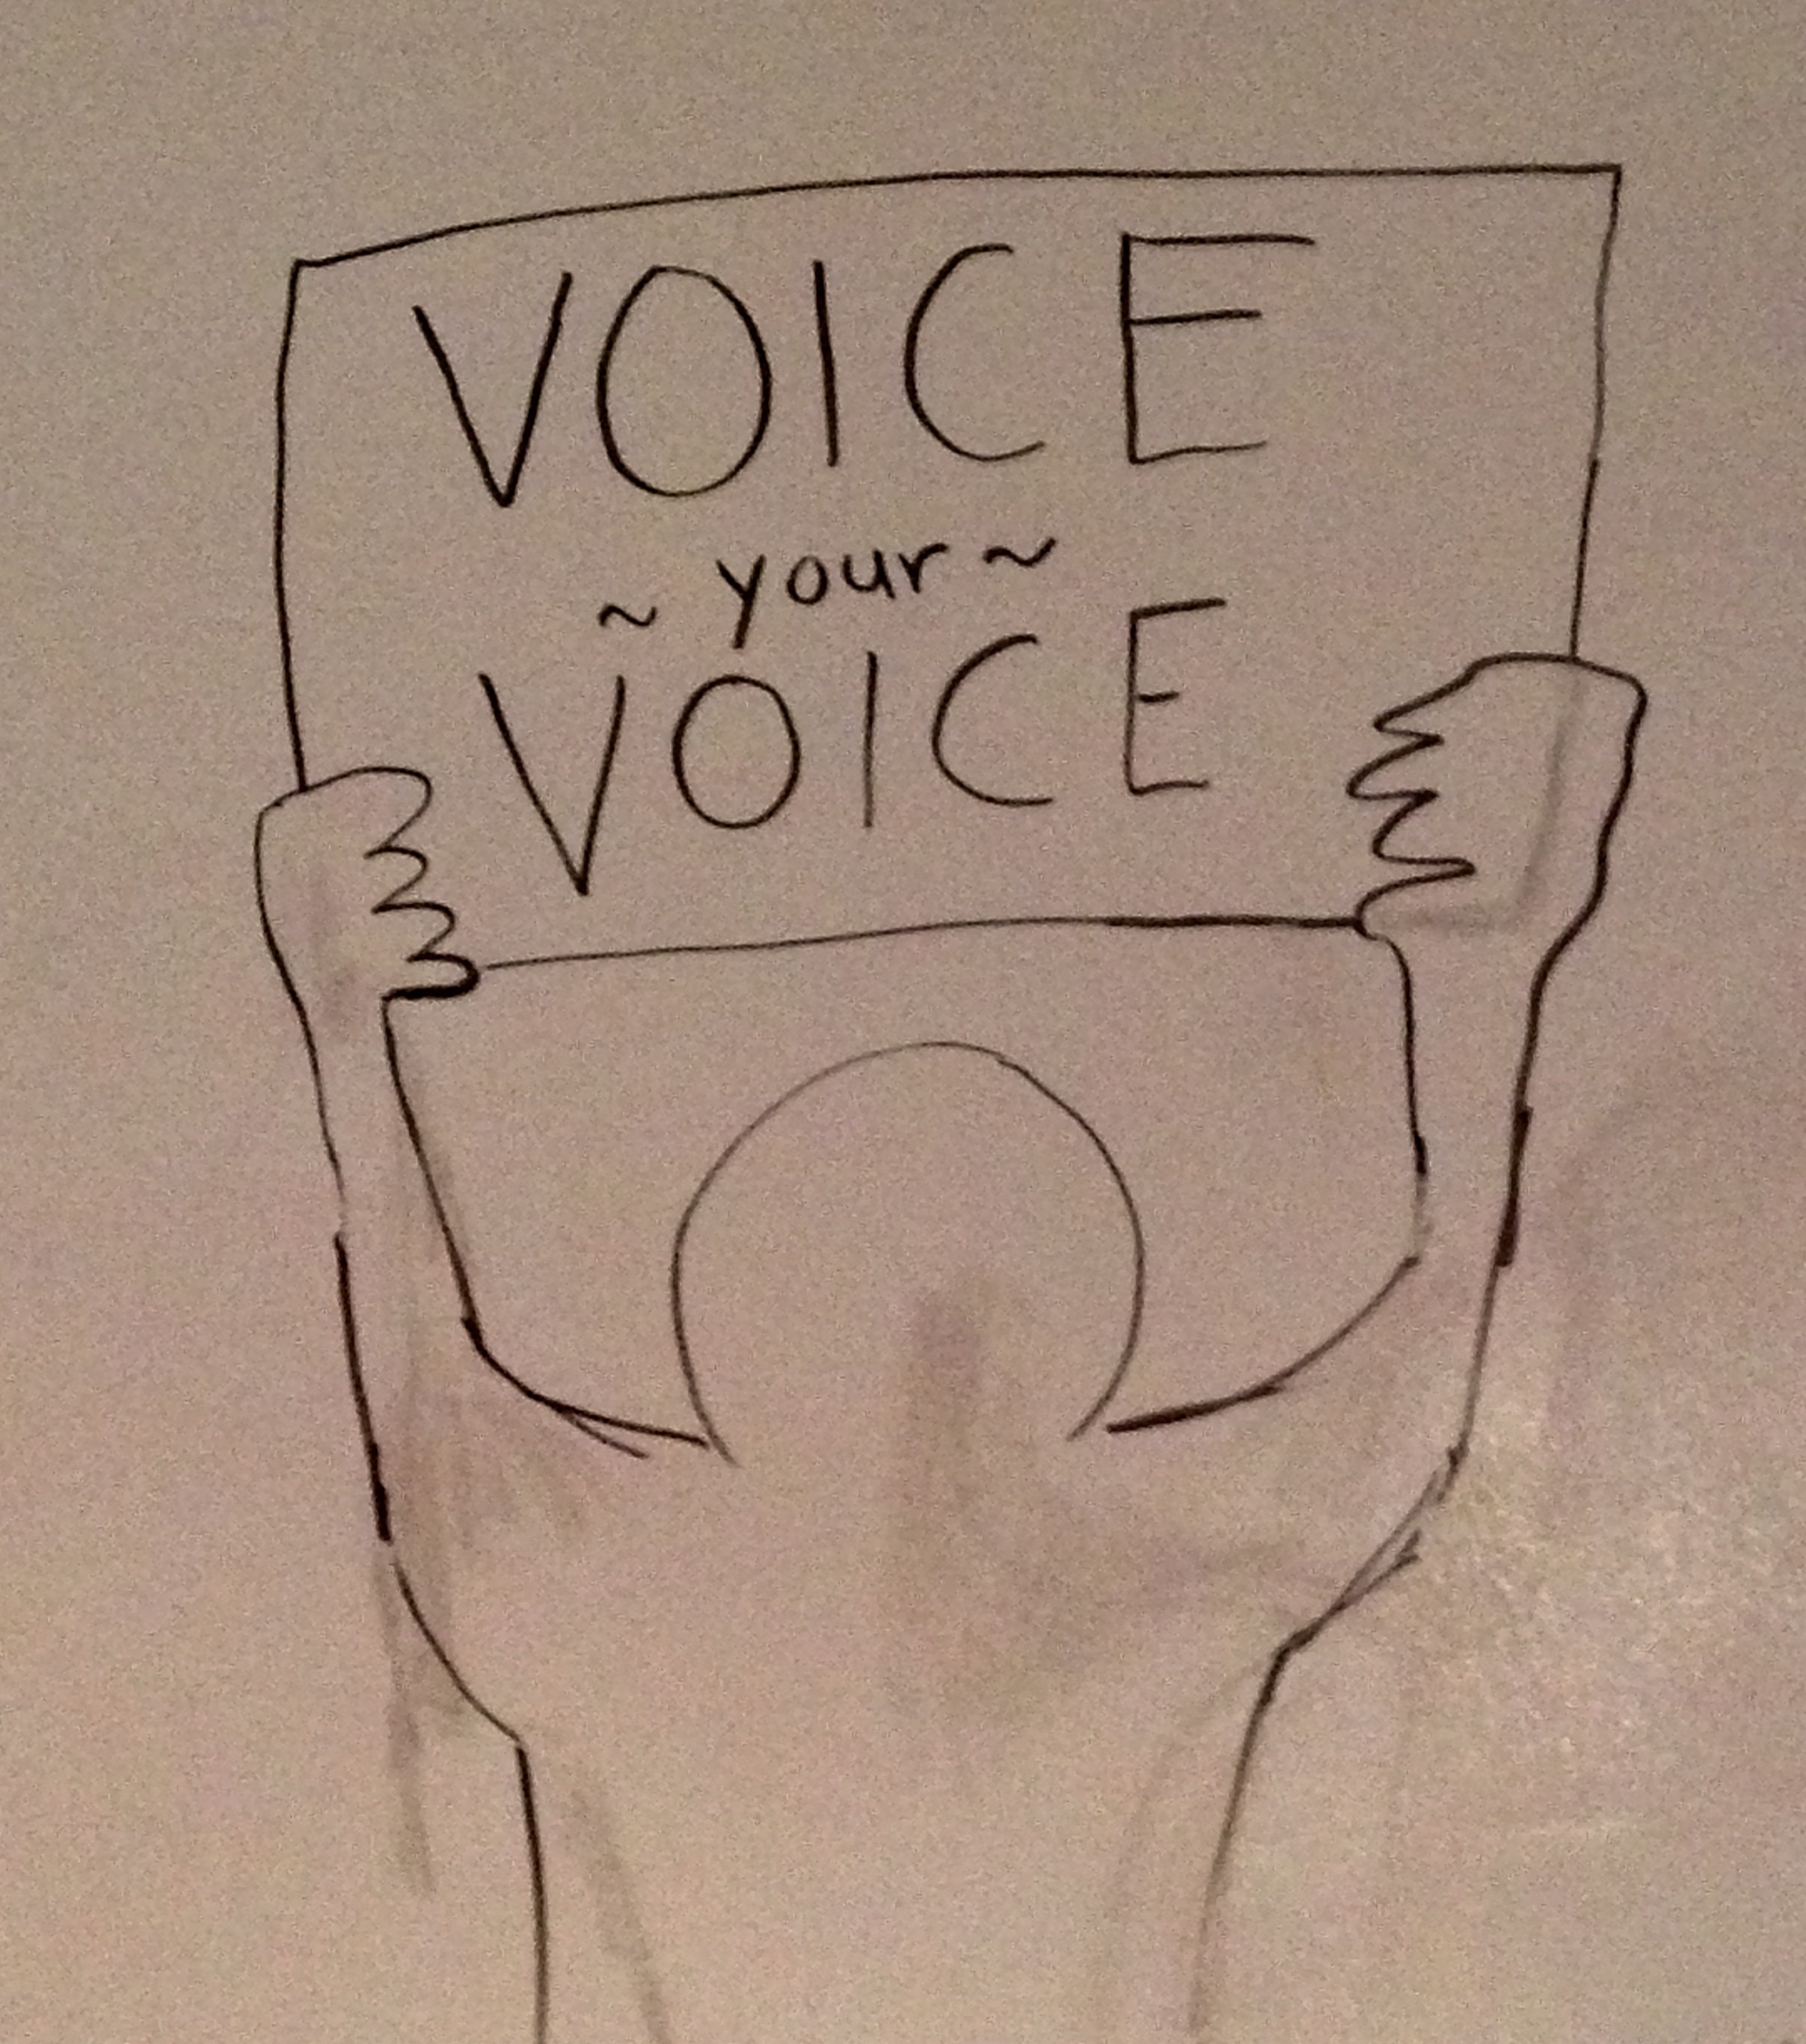 VOICE
~ your ~
VOICE